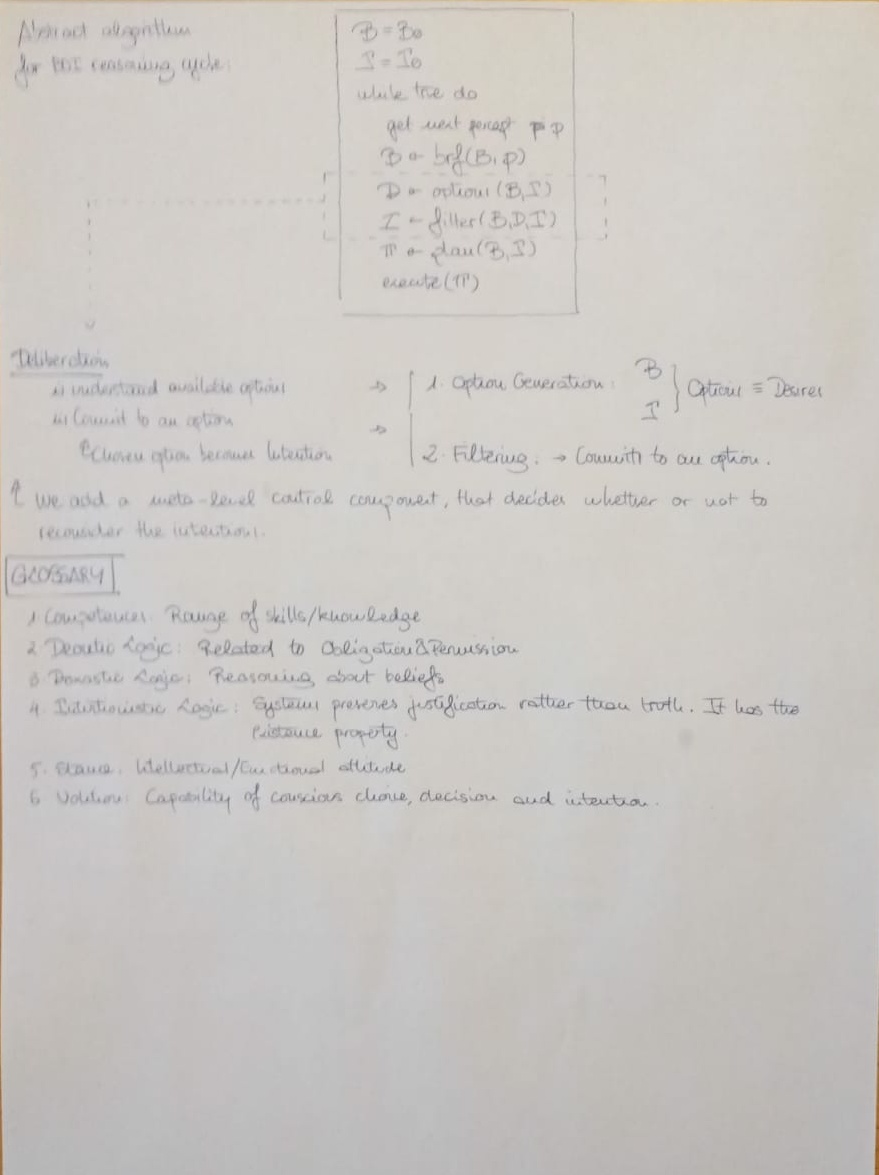 Abstract algorithm
for BDI reasoning cycle:
B = B0
I = I0
while true do
get next percept p
B ← brf(B, p)
D ← options(B, I)
I ← filter(B, D, I)
π ← plan(B, I)
execute(π)
Deliberation
i) understand available options
ii) Commit to an option
↑ Chosen option becomes Intention
→ 1. Option Generation: B I } Options ≡ Desires
→ 2. Filtering: → Commits to an option.
↑ We add a meta-level control component, that decides whether or not to
reconsider the intentions.
GLOSSARY
1 Competences: Range of skills/knowledge
2 Deontic Logic: Related to Obligation & Permission
3 Doxastic Logic: Reasoning about beliefs
4. Intuitionistic Logic: Systems preserves justification rather than truth. It has the
Existence property.
5. Stance: Intellectual/Emotional attitude
6 Volition: Capability of conscious choice, decision and intention.